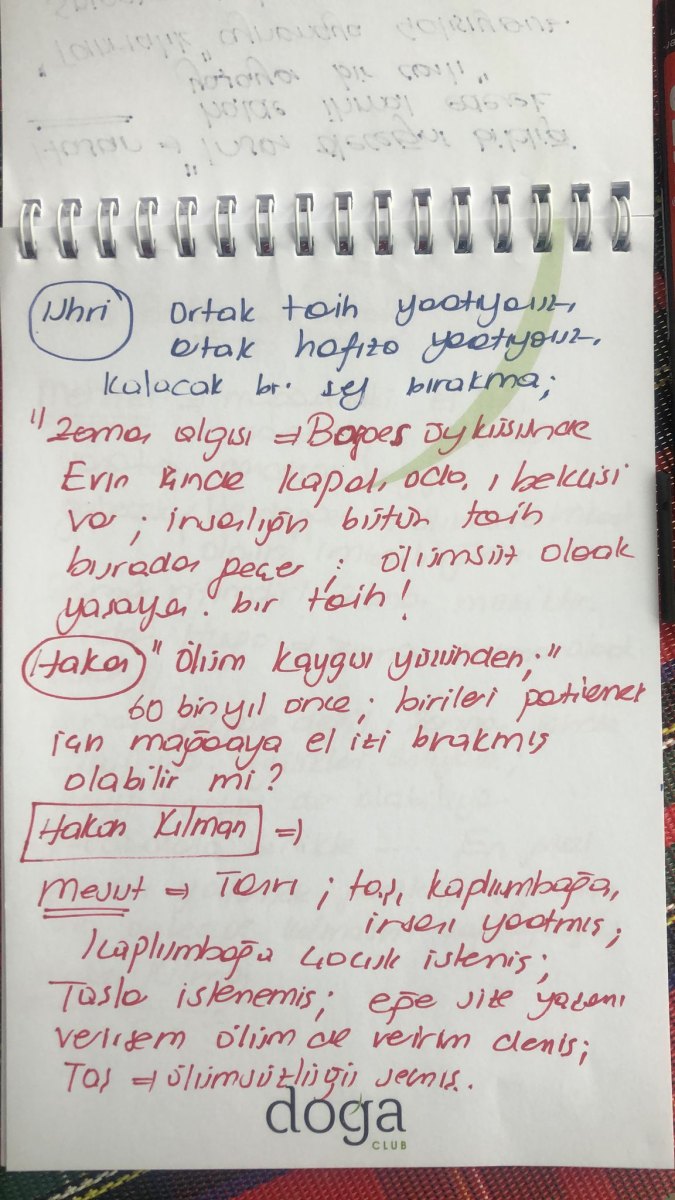 Uhri Ortak taih yaatıyoruz,
ortak hafıza yaatıyoruz,
Kalacak bir şey bırakma;
"Zaman algısı ⇒ Borges öyküsünde
Evin içinde kapalı oda, 1 bekçisi
var; insanlığın bütün taih
burada geçer; ölümsüz olaak
yaşayan bir taih!
Hakan "Ölüm kaygısı yüzünden;"
60 bin yıl önce; birileri
için mağaaya el izi bırakmış
olabilir mi?
Hakan Kılman ⇒
Mesut ⇒ Tanrı; taş, kaplumbağa,
insanı yaatmış;
Kaplumbağa çocuk istemiş;
Taşla istenemiş; eğe size yaşamı
verirsem ölüm de veririm demiş;
Taş ⇒ ölümsüzlüğü seçmiş.
doğa
CLUB